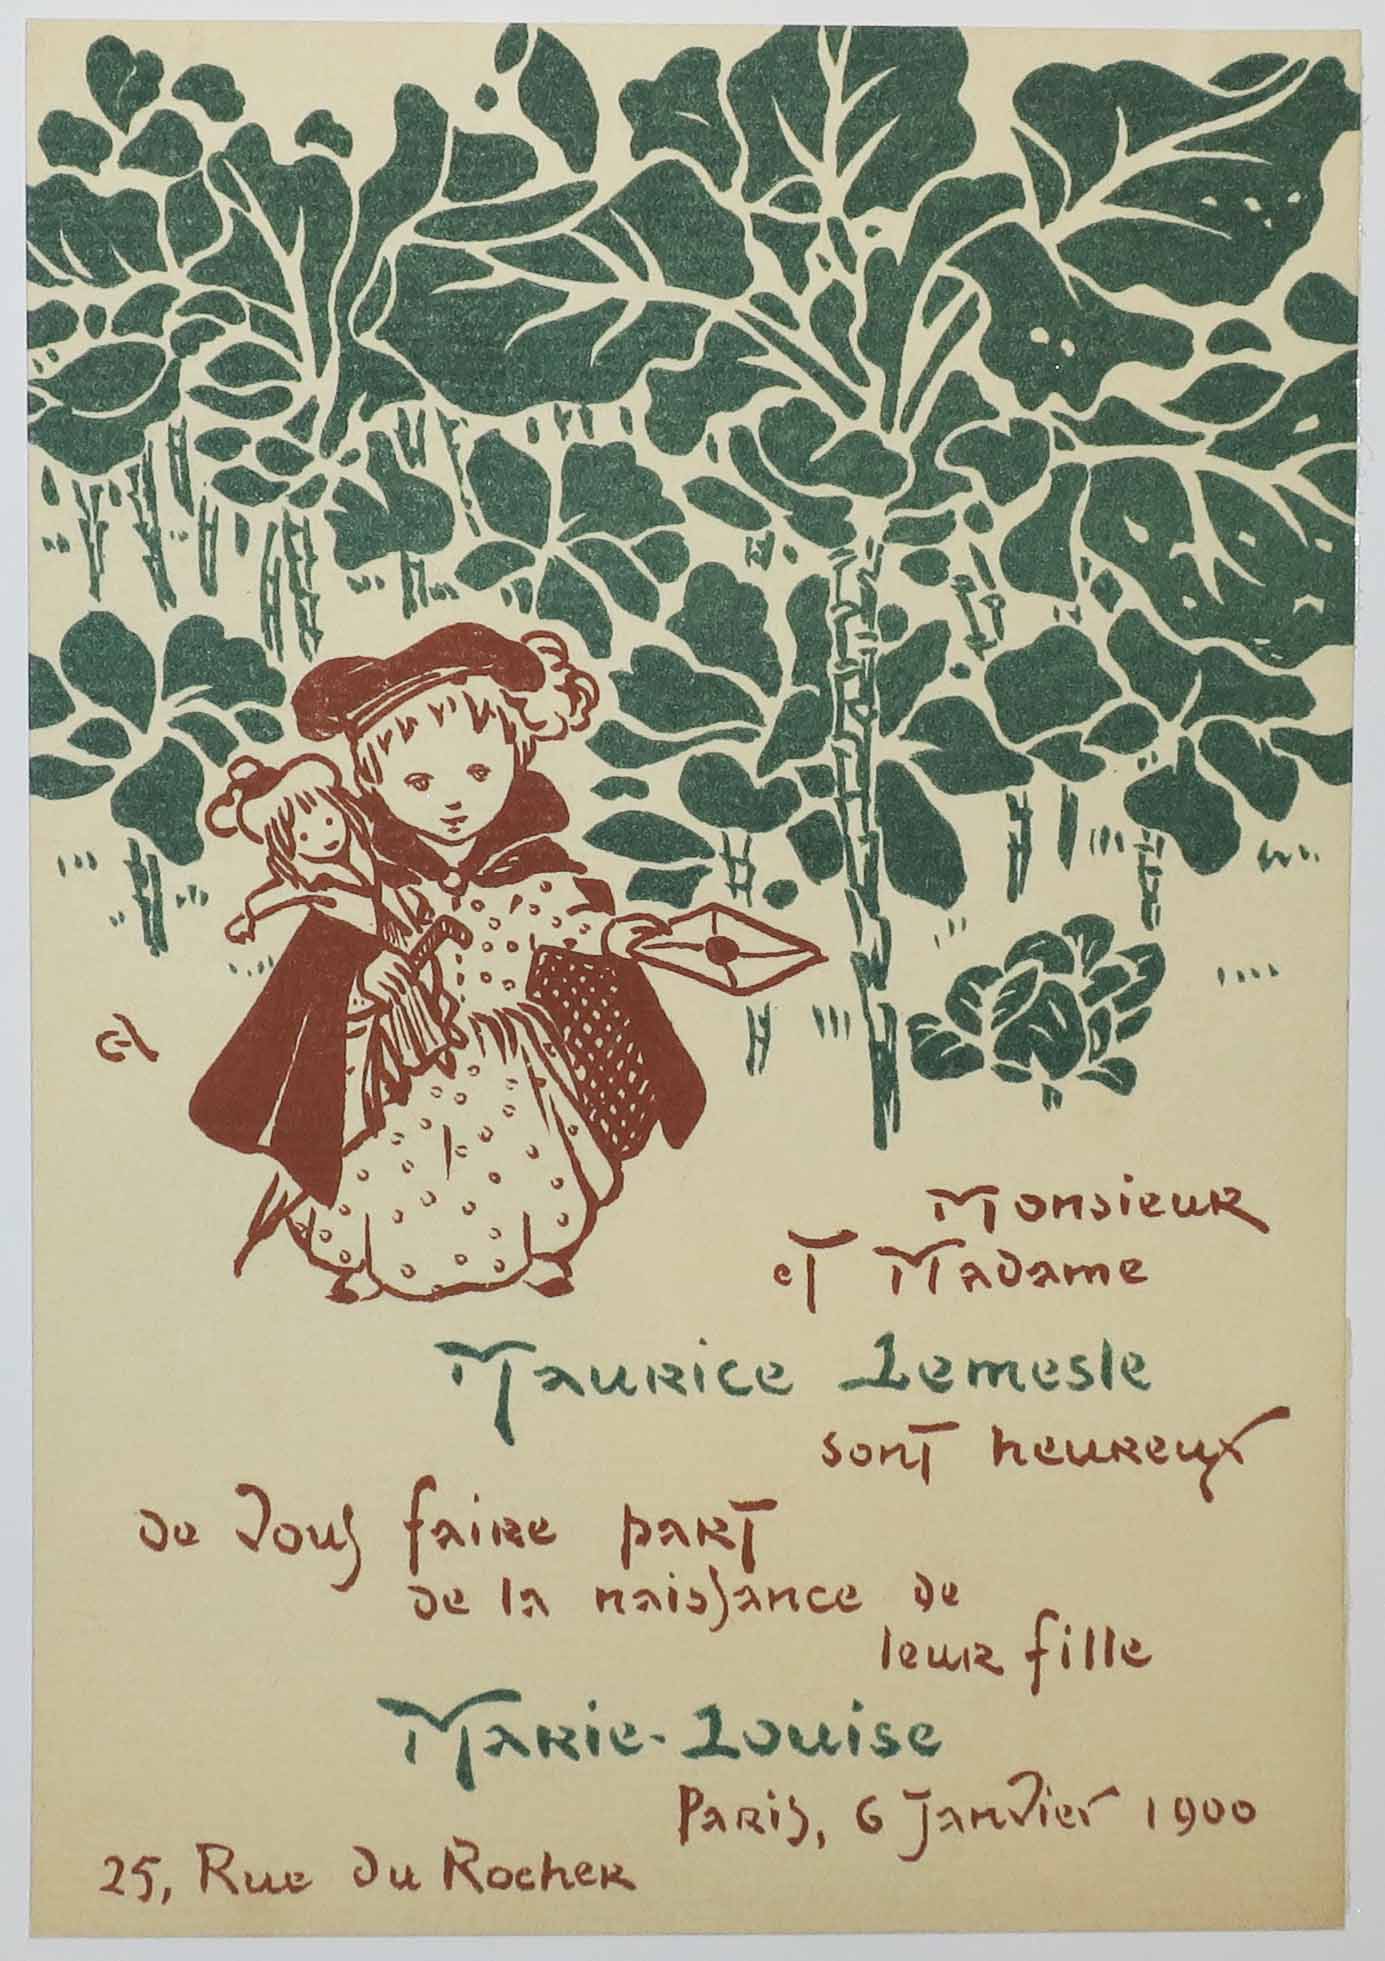 Monsieur
et Madame
Maurice Lemesle
sont heureux
de vous faire part
de la naissance de
leur fille
Marie-Louise
Paris, 6 Janvier 1900
25, Rue du Rocher